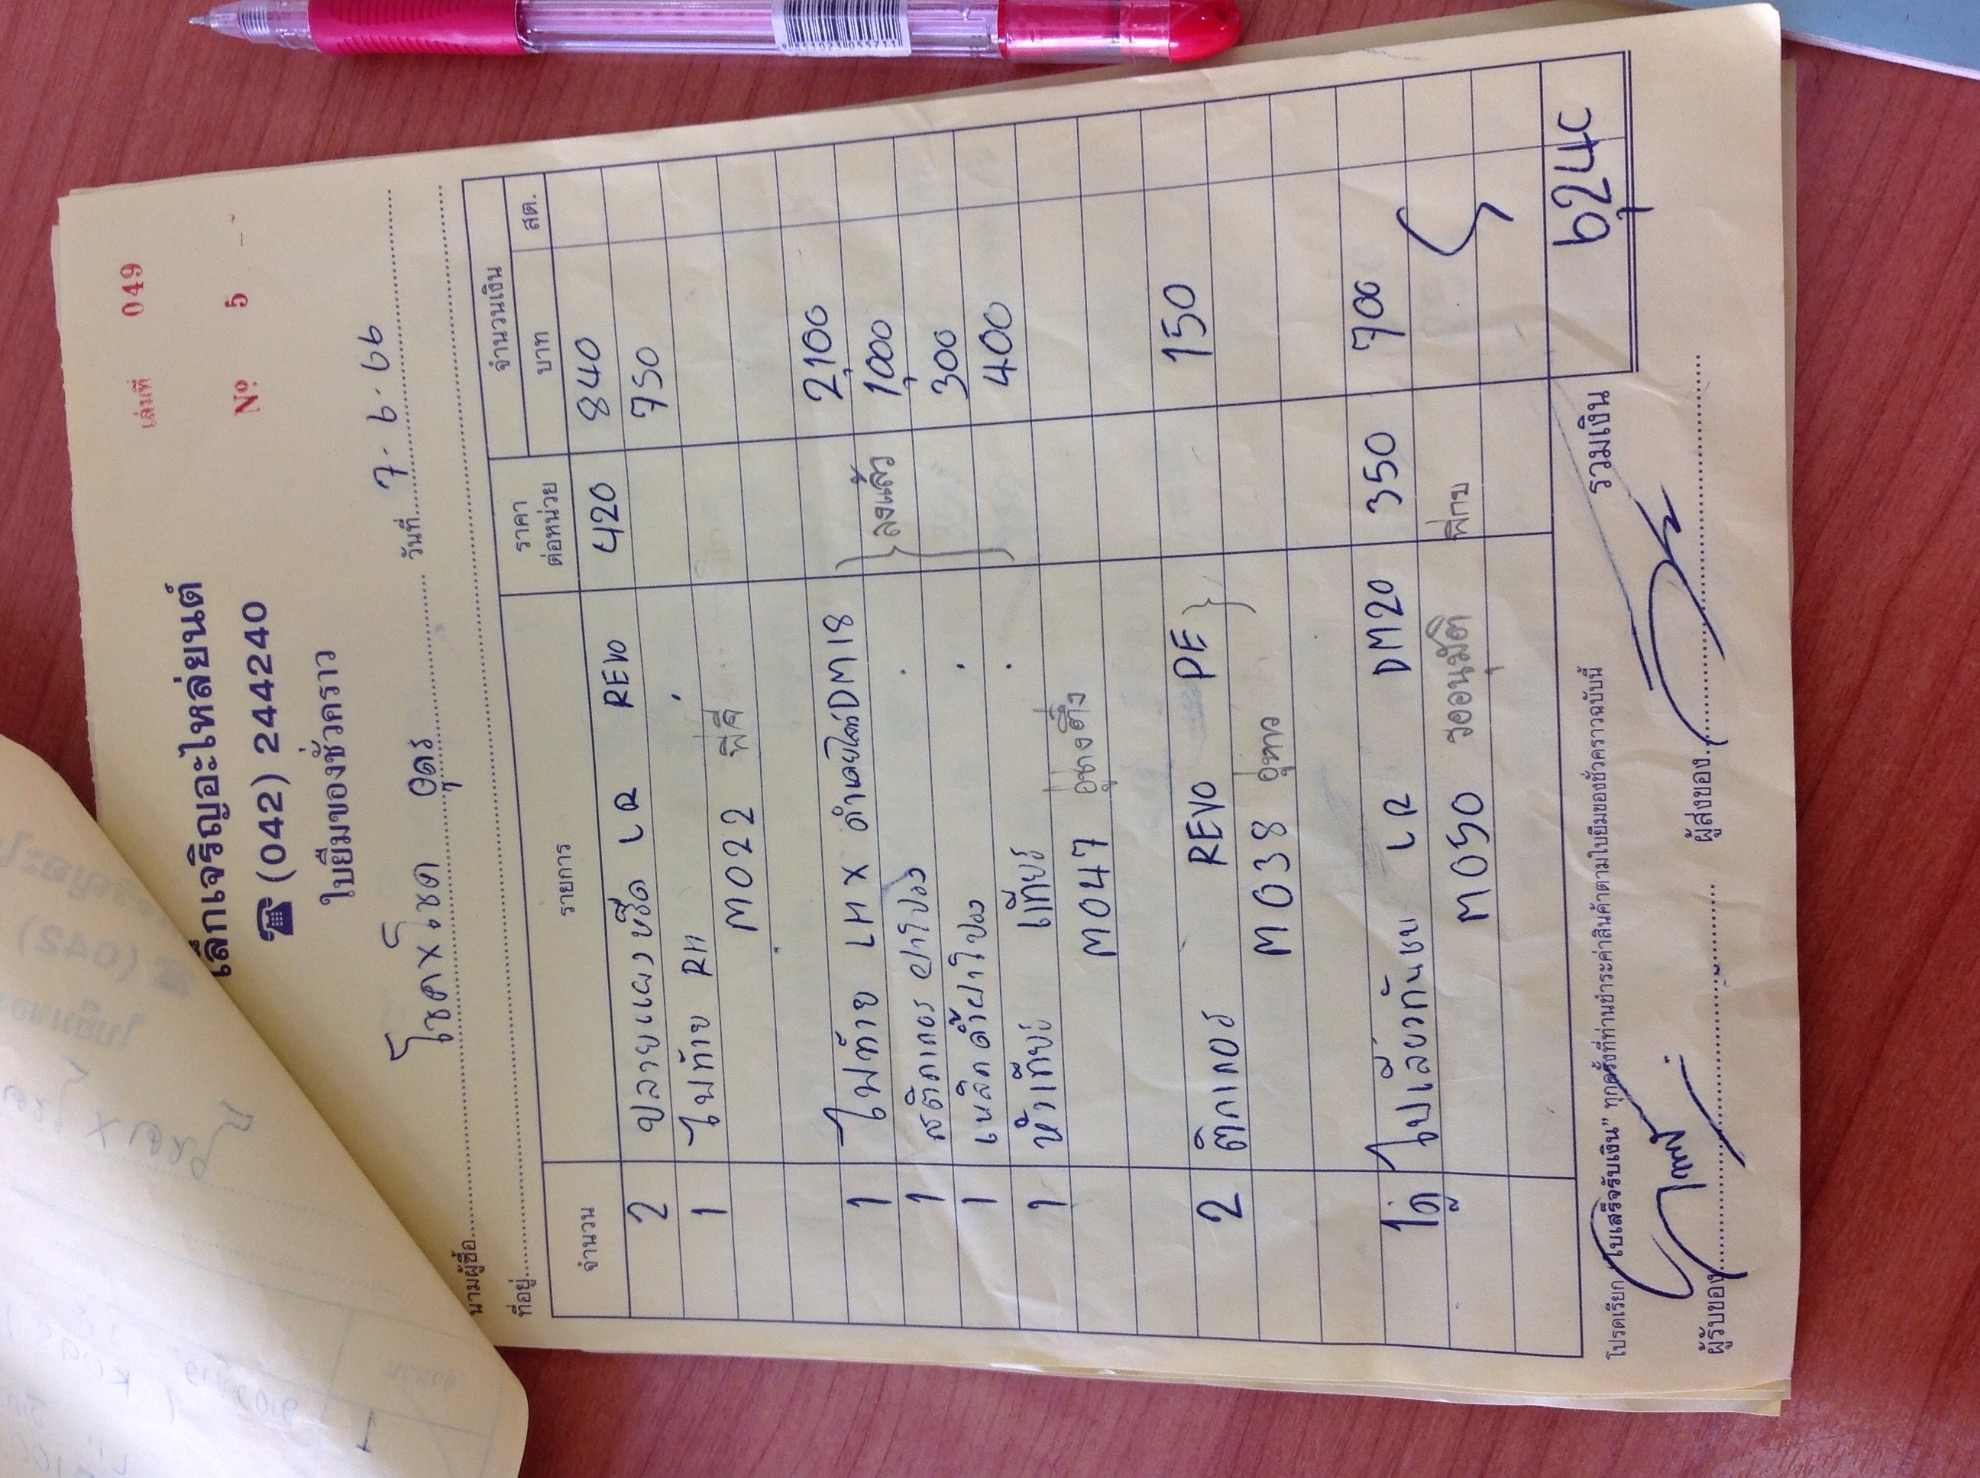 เล่มที่ 049
Nº 5
เล็กเจริญอะไหล่ยนต์
☎ (042) 244240
ใบยืมของชั่วคราว
วันที่ 7.6.66
นามผู้ซื้อ โชคxโชค อุดร
ที่อยู่
จำนวน รายการ ราคาต่อหน่วย จำนวนเงิน
บาท สต.
2 ปลายแผงซีด LR REVO 420 840
1 ไฟท้าย RH 750
M022 พี่ดี
1 ไฟท้าย LH X DM18 2,100
1 สติกเกอร์ ฝาโปง 1,000
ลงแล้ว
1 เหล็กค้ำฝาโปง 300
1 หัวเกียร์ เกียร์ 400
M047 อู่ช่างติ่ง
2 ติกเกอร์ REVO PE 150
M038
1คู่ ไฟเลี้ยวกันชน LR DM20 350 700
M050 รออนุมัติ
รวมเงิน 6,240
โปรดเรียก "ใบเสร็จรับเงิน" ทุกครั้งที่ท่านชำระค่าสินค้าตามใบยืมของชั่วคราวฉบับนี้
ผู้รับของ ผู้ส่งของ